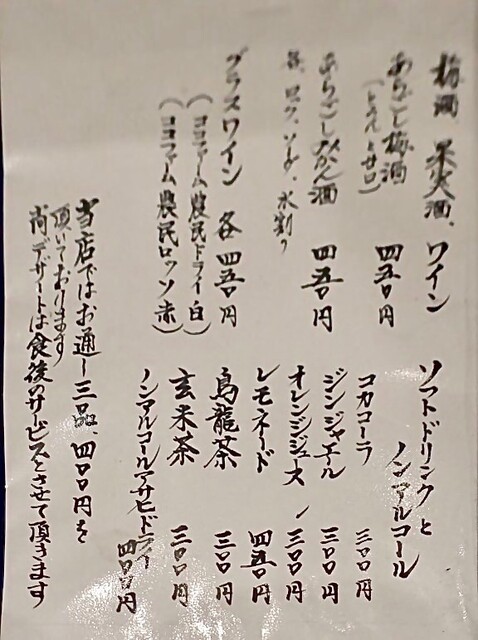 梅酒 果実酒、ワイン
あらごし梅酒 四五〇円
(とろんと甘口)
あらごしみかん酒 四五〇円
各、ロック、ソーダ、水割り
グラスワイン 各四五〇円
(ココファーム農民ドライ白)
(ココファーム農民ロッソ赤)
ソフトドリンクと
ノンアルコール
コカコーラ 三〇〇円
ジンジャエール 三〇〇円
オレンジジュース 三〇〇円
レモネード 四五〇円
烏龍茶 三〇〇円
玄米茶 三〇〇円
ノンアルコールアサヒドライ
四〇〇円
当店ではお通し三品、四〇〇円を
頂いております
尚デザートは食後のサービスとさせて頂きます